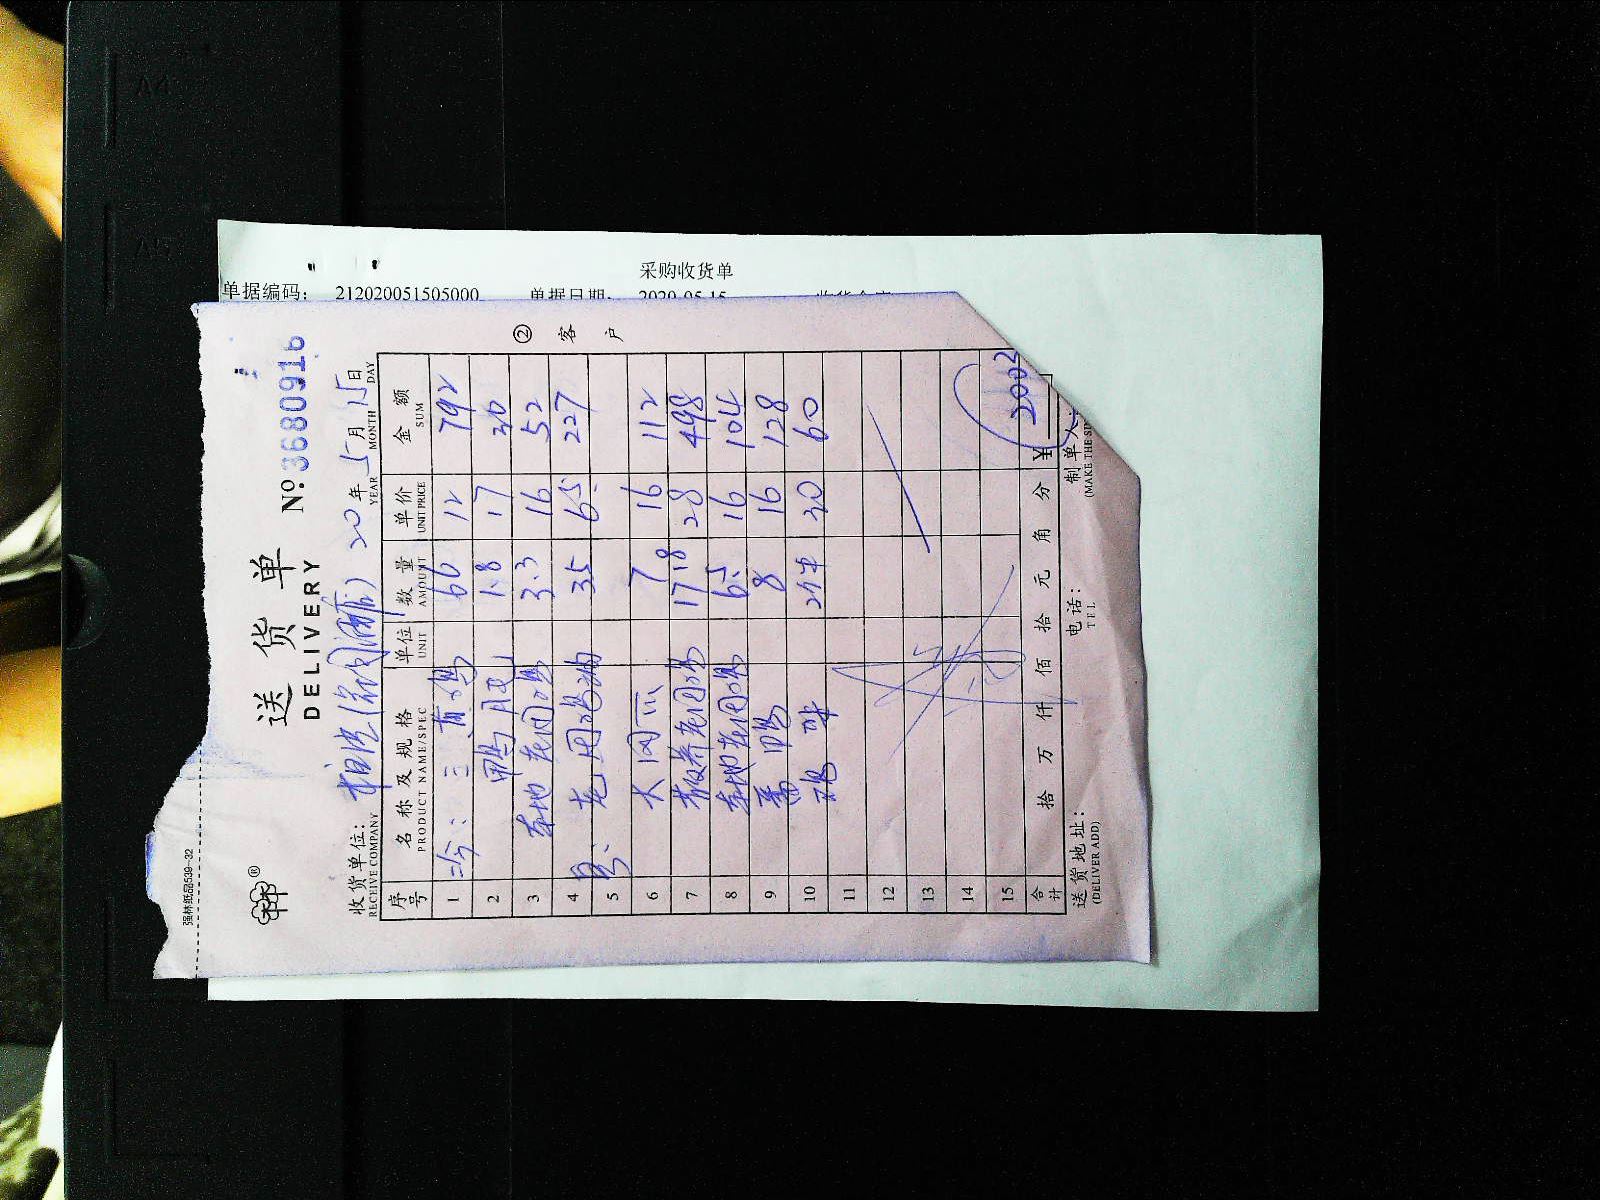 采购收货单
单据编码： 212020051505000 单据日期： 2020-05-15
强林纸品539-32
送 货 单
DELIVERY
No. 3680916
② 客 户
收货单位：
RECEIVE COMPANY
20年5月15日
YEAR MONTH DAY
序号 名称及规格 单位 数量 单价 金额
PRODUCT NAME/SPEC UNIT AMOUNT UNIT PRICE SUM
1 66 12 792
2 鸭肫 1.8 17 30
3 本地老母鸡 3.3 16 52
4 35 6.5 227
5
6 7 16 112
7 散养老母鸡 17.8 28 498
8 本地老母鸡 6.5 16 104
9 8 16 128
10 30 60
11
12
13
14
15
合计 拾 万 仟 佰 拾 元 角 分 ¥ 2002
送货地址： 电话： 制单人
(DELIVER ADD) TEL (MAKE THE